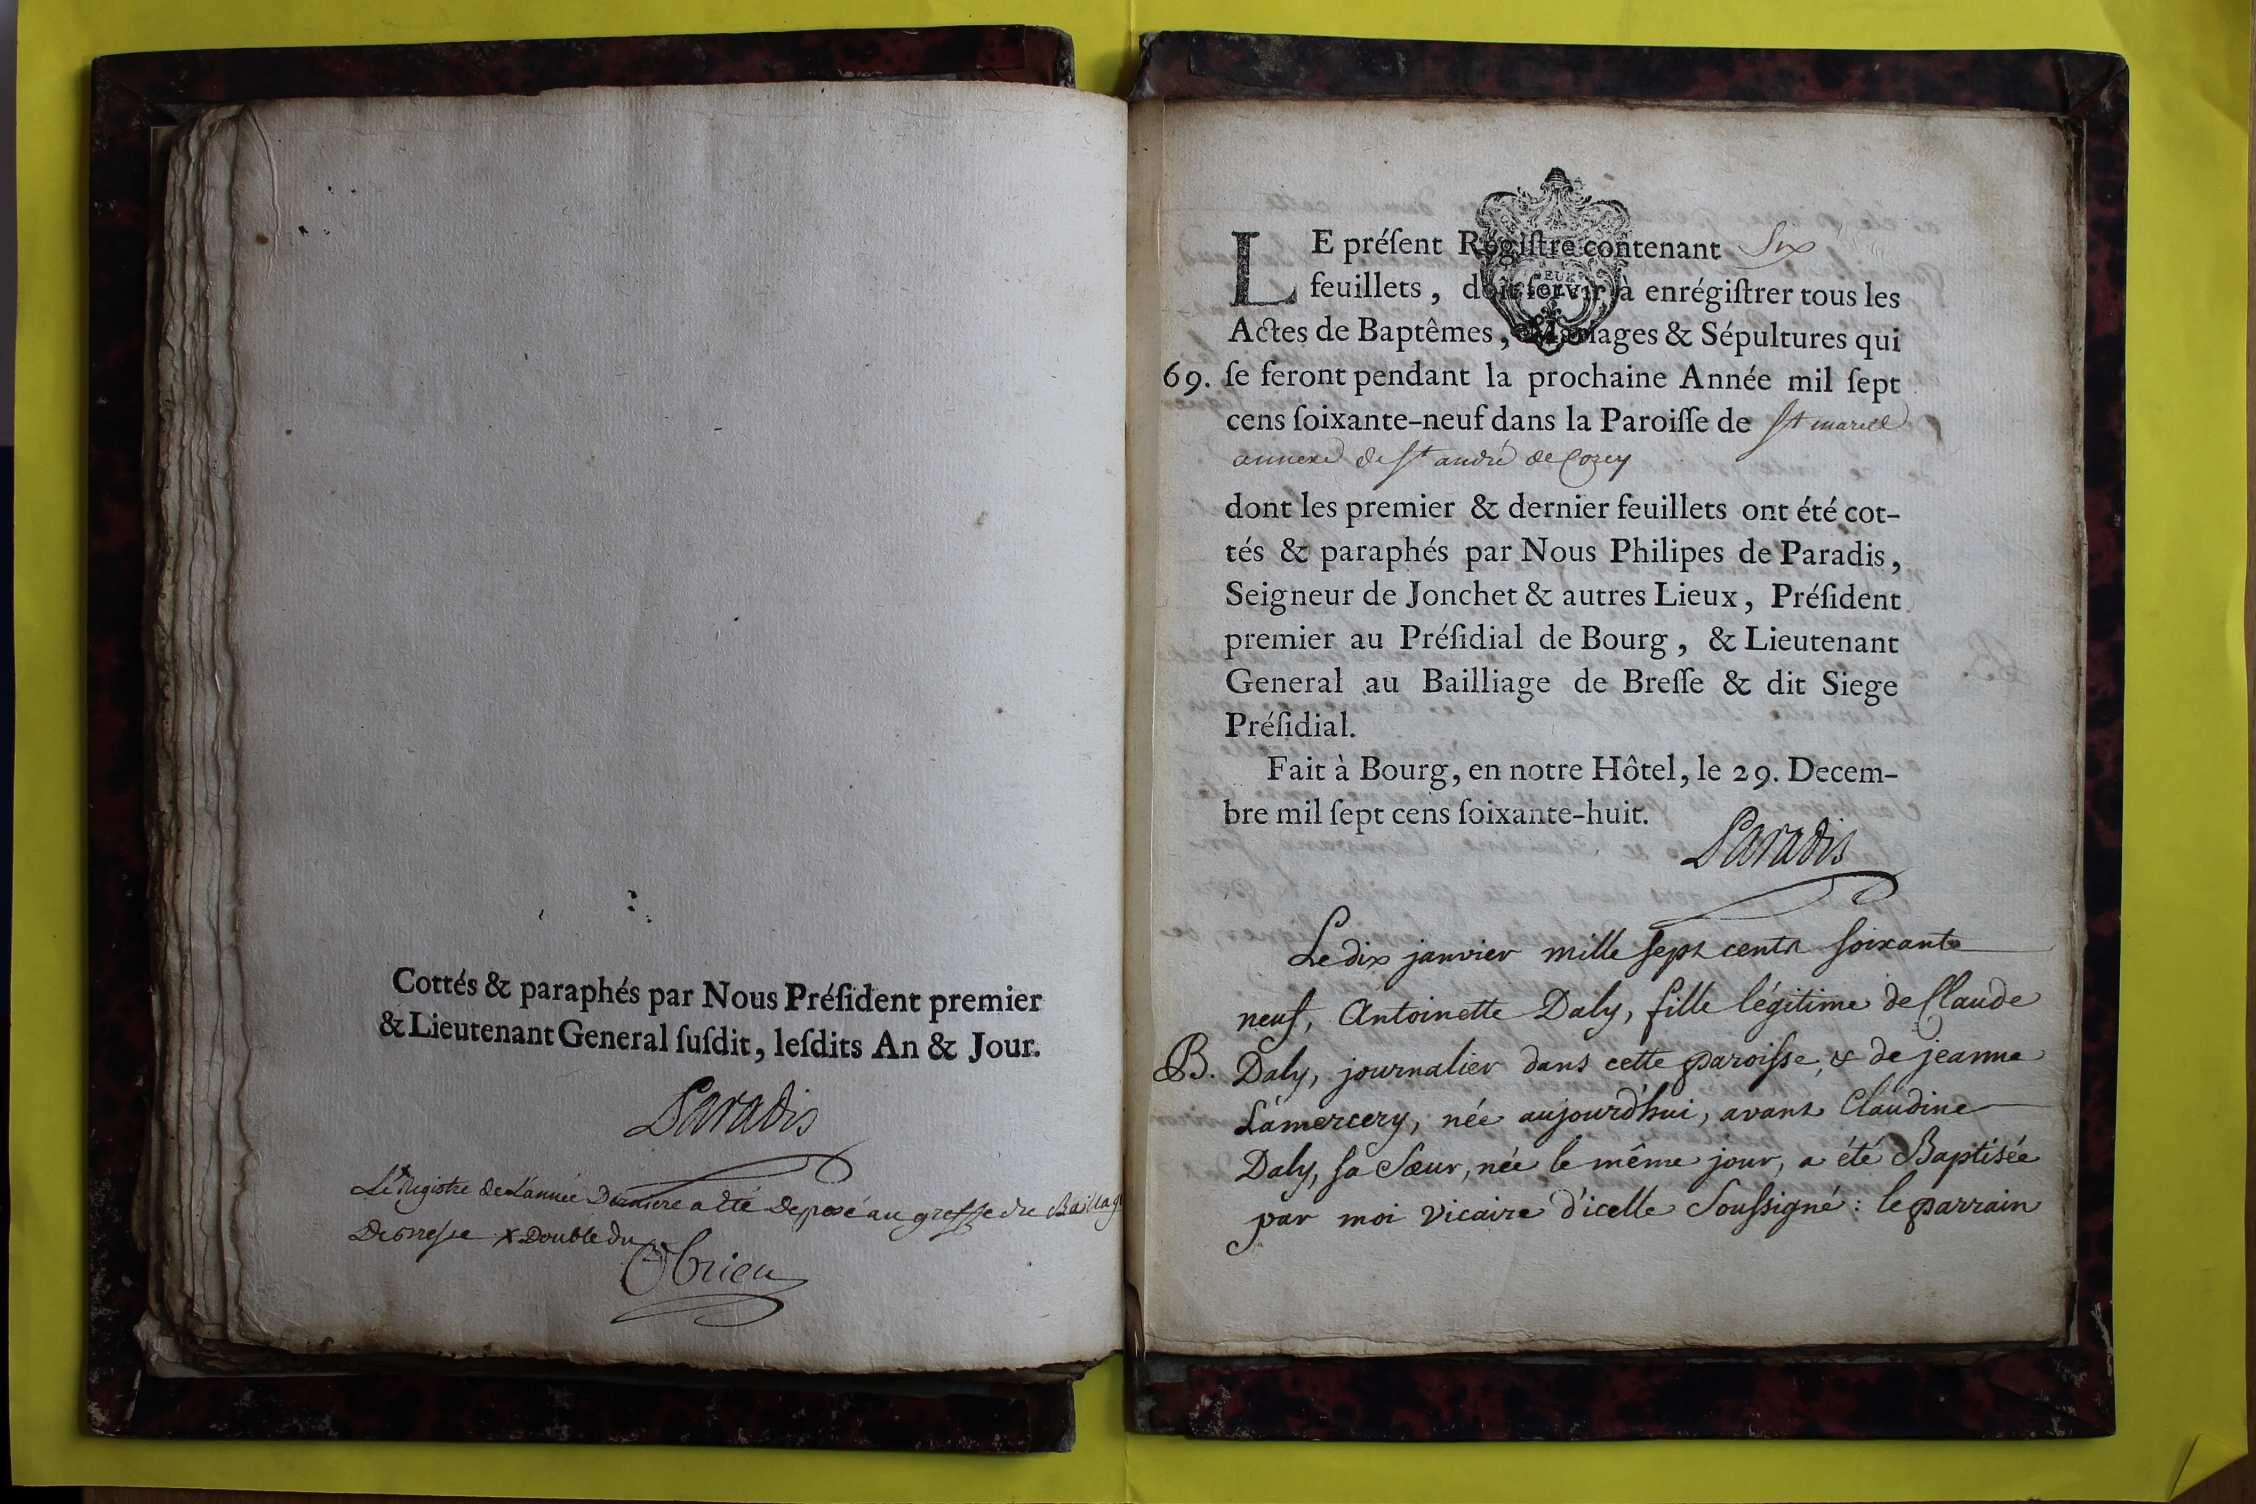 Cottés & paraphés par Nous Préſident premier
& Lieutenant General ſuſdit, leſdits An & Jour.
Paradis
Le Registre de L'année Derniere a eté Deposé au greffe du Bailliage
De Bresse x Double du
Obrien
LE préſent Régiſtre contenant Six
feuillets, doit ſervir à enrégiſtrer tous les
Actes de Baptêmes, Mariages & Sépultures qui
69. ſe feront pendant la prochaine Année mil ſept
cens ſoixante-neuf dans la Paroiſſe de St marcel
annexe de St andré de Corcy
dont les premier & dernier feuillets ont été cot-
tés & paraphés par Nous Philipes de Paradis,
Seigneur de Jonchet & autres Lieux, Préſident
premier au Préſidial de Bourg, & Lieutenant
General au Bailliage de Breſſe & dit Siege
Préſidial.
Fait à Bourg, en notre Hôtel, le 29. Decem-
bre mil ſept cens ſoixante-huit.
Paradis
Le dix janvier mille sept cents soixante
neuf, Antoinette Daly, fille légitime de Claude
B. Daly, journalier dans cette paroisse, & de jeanne
Lamercery, née aujourd'hui, avant Claudine
Daly, sa Sœur, née le même jour, a été Baptisée
par moi Vicaire d'icelle Soussigné : le parrain